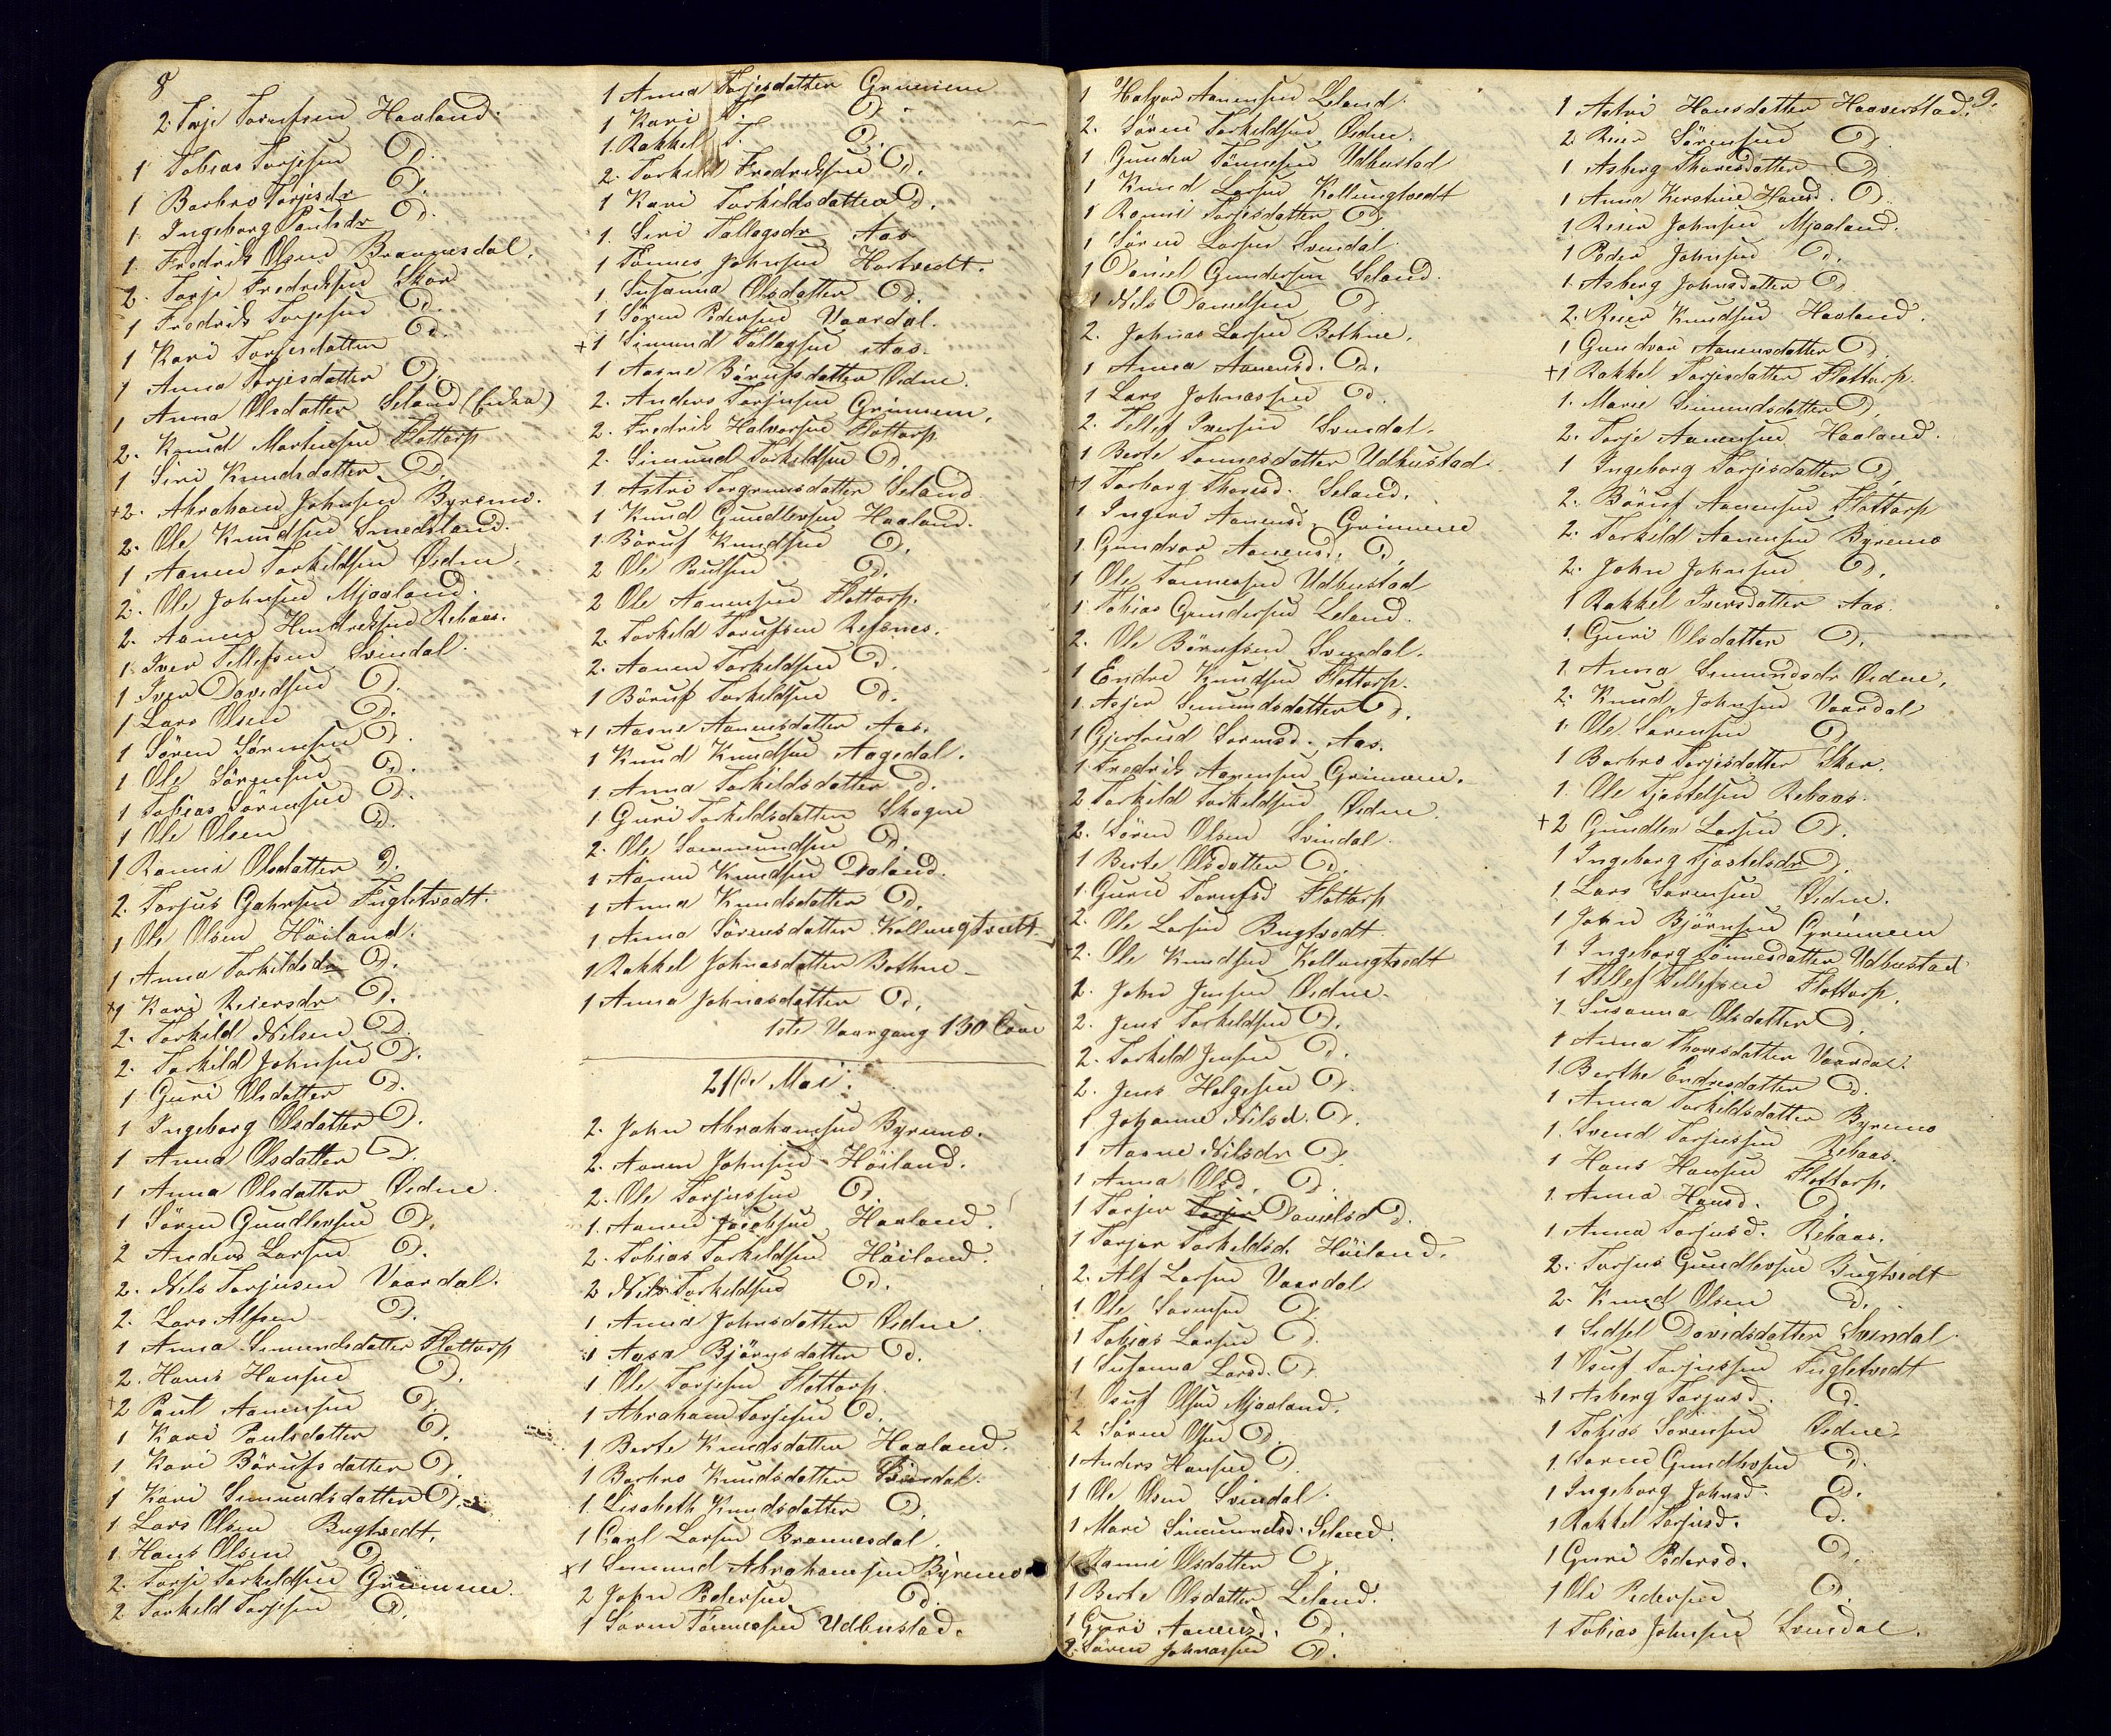 8
2. Torje Torufsen Haaland.
1 Tobias Torjesen D.
1 Barbro Torjesdr D.
1. Ingeborg Paulsdr D.
1. Fredrik Olsen Brannesdal.
2. Torje Fredriksen Skar
1 Fredrik Torjesen D.
1 Kari Torjesdatter D.
1 Anna Torjesdatter D.
1 Anna Olsdatter Seland (Enka)
2. Knud Mortensen Flottorp
1 Siri Knudsdatter D.
+2. Abraham Johnsen Byremo.
2. Ole Knudsen Smedsland.
1 Aanen Torkildsen Øidne.
2. Ole Johnsen Mjaaland.
2. Aanen Hendriksen Rebaas.
1. Iver Tellefsen Svindal.
1 Iver Davidsen D.
1 Lars Olsen D.
1 Sören Sörensen D.
1 Ole Sörensen D.
1 Tobias Sörensen D.
1 Ole Olsen D.
1 Ranni Olsdatter D.
2. Torjus Fugletvedt.
1 Ole Olsen Höiland.
1 Anna Torkildsdr D.
+1 Kari Reiersdr D.
2. Torkild Nilsen D.
2. Torkild Johnsen D.
1 Guri Olsdatter D.
1 Ingeborg Olsdatter D.
1 Anna Olsdatter D.
1 Anna Olsdatter Øidne
1 Sören Gundlevsen D.
2 Anders Larsen D.
2. Nils Torjusen Vaardal.
2. Lars Alfsen D.
1 Anna Simundsdatter Flottorp
2. Hans Hansen D.
+2 Paul Aanensen D.
1 Kari Paulsdatter D.
1 Kari Börufsdatter D.
1 Kari Simundsdatter D.
1 Lars Olsen Bugtvedt.
1. Hans Olsen D.
2. Torje Torkildsen Grimmen.
2 Torkild Torjesen D.
1 Anna Torjesdatter Grimmen
1 Kari T. D.
1. Rakkel T. D.
2. Torkild Fredriksen D.
1 Kari Torkildsdatter D.
1. Siri Tallagsdr Aas
1 Tönnes Johnsen Hortvedt.
1. Susanna Olsdatter D.
1 Sören Pedersen Vaardal.
+1 Simund Tallagsen Aas.
1 Aasne Börufsdatter Øidne.
2. Anders Torjusen Grimmen.
2. Fredrik Halvorsen Flottorp
2. Simund Torkildsen D.
1. Astri Torgrimsdatter Seland
1 Knud Gundlevsen Haaland.
1. Böruf Knudsen D.
2 Ole Paulsen D.
2 Ole Aanensen Flottorp.
2. Torkild Torufsen Refsnes.
2. Aanen Torkildsen D.
1 Böruf Torkildsen D.
+1 Aasne Aanensdatter Aas.
1 Knud Knudsen Aagedal.
1. Anna Torkildsdatter D.
1 Guri Torkildsdatter Skogen
2. Ole Sommundsen D.
1 Aanen Knudsen Daland.
1 Anna Knudsdatter D.
1 Anna Sörensdatter Kollungtvedt
1 Rakkel Johnasdatter Bothne
1 Anna Johnasdatter D.
1ste Vaargang 130 Com
21de Mai.
2. John Abrahamsen Byremo.
2. Aanen Johnsen Höiland.
2. Ole Torjussen D.
1. Aanen Jacobsen Haaland.
2. Tobias Torkildsen Höiland.
2 Nils Torkildsen D.
1 Anna Johnsdatter Øidne.
1 Aasa Björnsdatter D.
1 Ole Torjesen Flottorp.
1 Abraham Torjesen D.
1 Berte Knudsdatter Haaland.
1 Barbro Knudsdatter Svindal.
1. Lisabeth Knudsdatter D.
1 Carl Larsen Brannesdal.
x1 Simund Abrahamsen Byremo
2 John Pedersen D.
1 Sören Tönnessen Udbustad.
1 Halvor Aanensen Leland.
2. Sören Torkildsen Øidne.
1 Gunder Tönnesen Udbustad
1 Knud Larsen Kollungtvedt
1 Ranni Torjesdatter D.
1 Sören Larsen Svindal.
1 Daniel Gundersen Seland.
1 Nils Danielsen D
2. Johnas Larsen Bothne.
1 Anna Aanensd. D.
1 Lars Johnassen D.
2. Tellef Iversen Svindal.
1 Berte Tönnesdatter Udbustad.
+1 Torborg Thoresd. Seland.
1 Ingeri Aanensd. Grimmen
1. Gundvor Aanensd. D.
1 Ole Tönnessen Udbustad
1. Tobias Gundersen Leland.
2. Ole Börufsen Svindal.
1 Endre Knudsen Flottorp.
1. Asjer Simundsdatter D.
1 Gjertrud Sörensd. Aas.
1. Fredrik Aanensen Grimmen.
2 Torkild Torkildsen Øidne.
2. Sören Olsen Svindal.
1 Berte Olsdatter D.
1. Guri Torufsd Flottorp
2. Ole Larsen Bugtvedt
2. Ole Knudsen Kollungtvedt
2. John Jensen Øidne.
2. Jens Torkildsen D.
2. Torkild Jensen D.
2. Jens Helgesen D.
1 Johanne Nilsd. D.
1 Aasne Nilsdr D.
1 Anna Olsd. D.
1 Torjer Torjer Danielsd D.
1 Torjer Torkildsd. Höiland.
2. Alf Larsen Vaardal
1. Ole Sörensen D.
1 Tobias Larsen D.
1 Susanna Larsd. D.
1 Osuf Olsen Mjaaland.
2 Sören Olsen D.
1 Anders Hansen D.
1 Ole Olsen Svindal.
1 Mari Simundsd. Seland.
1 Ranni Olsdatter D.
1 Berte Olsdatter Leland.
1 Guri Aanensd. D.
2. Sören Johnassen D.
9.
1 Astri Hansdatter Haaverstad.
2 Reier Sörensen D.
1 Asberg Thoresdatter D
1 Anna Kirstine Hansd. D.
1 Reier Johnsen Mjaaland.
1 Peder Johnsen D.
1. Asberg Johnsdatter D
2. Reier Knudsen Haaland.
1 Gundvor Aanensdatter D.
+1 Rakkel Torjesdatter Flottorp.
1. Marie Simundsdatter D.
2. Torje Aanensen Haaland.
1 Ingeborg Torjesdatter D.
2. Böruf Aanensen Flottorp
2. Torkild Aanensen Byremo
2. John Johnsen D.
1 Rakkel Iversdatter Aas.
1. Guri Olsdatter D.
1. Anna Simundsdr Øidne.
2. Knud Johnsen Vaardal
1. Ole Sörensen D.
1 Barbro Torjesdatter Skar.
1. Ole Tjostelsen Rebaas.
+2 Gundlev Larsen D.
1 Ingeborg Tjostelsdr D.
1. Lars Sörensen Øidne.
1 John Björnsen Grimmen
1 Ingeborg Tönnesdatter Udbustad
1 Tellef Tellefsen Flottorp.
1. Susanna Olsdatter D.
1 Anna Thoresdatter Vaardal.
1. Berthe Endresdatter D.
1 Anna Torkildsdatter Byremo
1. Svend Torjussen Rebaas.
1 Hans Hansen Flottorp.
1. Anna Hansd. D.
1 Anna Torjusd. Rebaas.
2. Torjus Gundlevsen Bugtvedt
2. Knud Olsen D.
1 Sidsel Davidsdatter Svindal
1 Osuf Torjussen Fugletvedt
x1 Asberg Torjusd. D.
1 Tobias Sörensen Øidne.
1. Sören Gundlevsen D.
1 Ingeborg Johnsd. D.
1 Rakkel Torjusd. D.
1 Guri Pedersd. D.
1 Ole Pedersen D.
1 Tobias Johnsen Svindal.